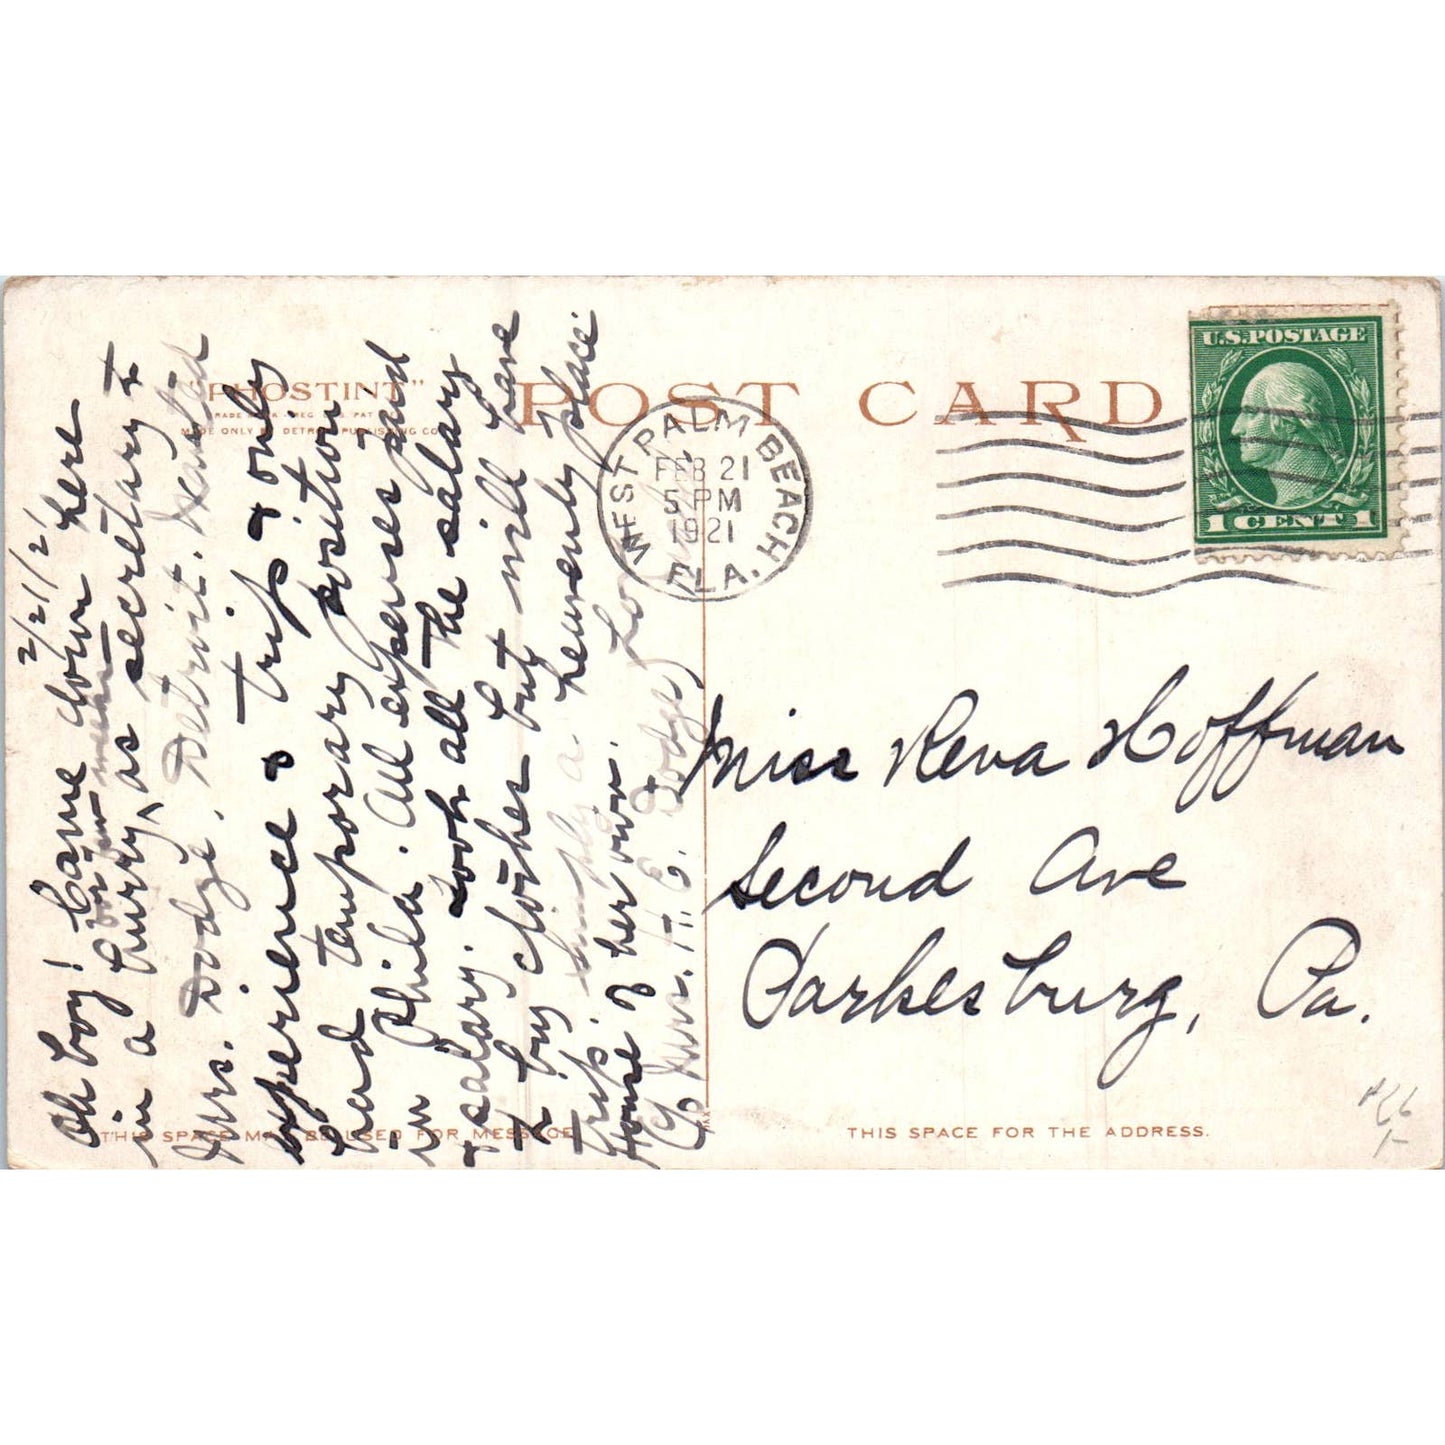 "PHOSTINT"
POST CARD
MADE ONLY BY DETROIT PUBLISHING CO
U.S.POSTAGE
1 CENT 1
WEST PALM BEACH
FEB 21
5 PM
1921
FLA.
2/21/21
Oh boy! Came down here
in a hurry, as secretary to
for few weeks
Mrs. Dodge, Detroit. Wanted
experience & trip & only
had temporary position
in Phila. All expenses paid
& salary. Took all the salary
to buy clothes but will have
trip. Simply a heavenly place.
House of her own.
C/o Mrs. H. E. Dodge
Miss Reva Hoffman
Second Ave
Parkesburg, Pa.
THIS SPACE MAY BE USED FOR MESSAGE
THIS SPACE FOR THE ADDRESS.